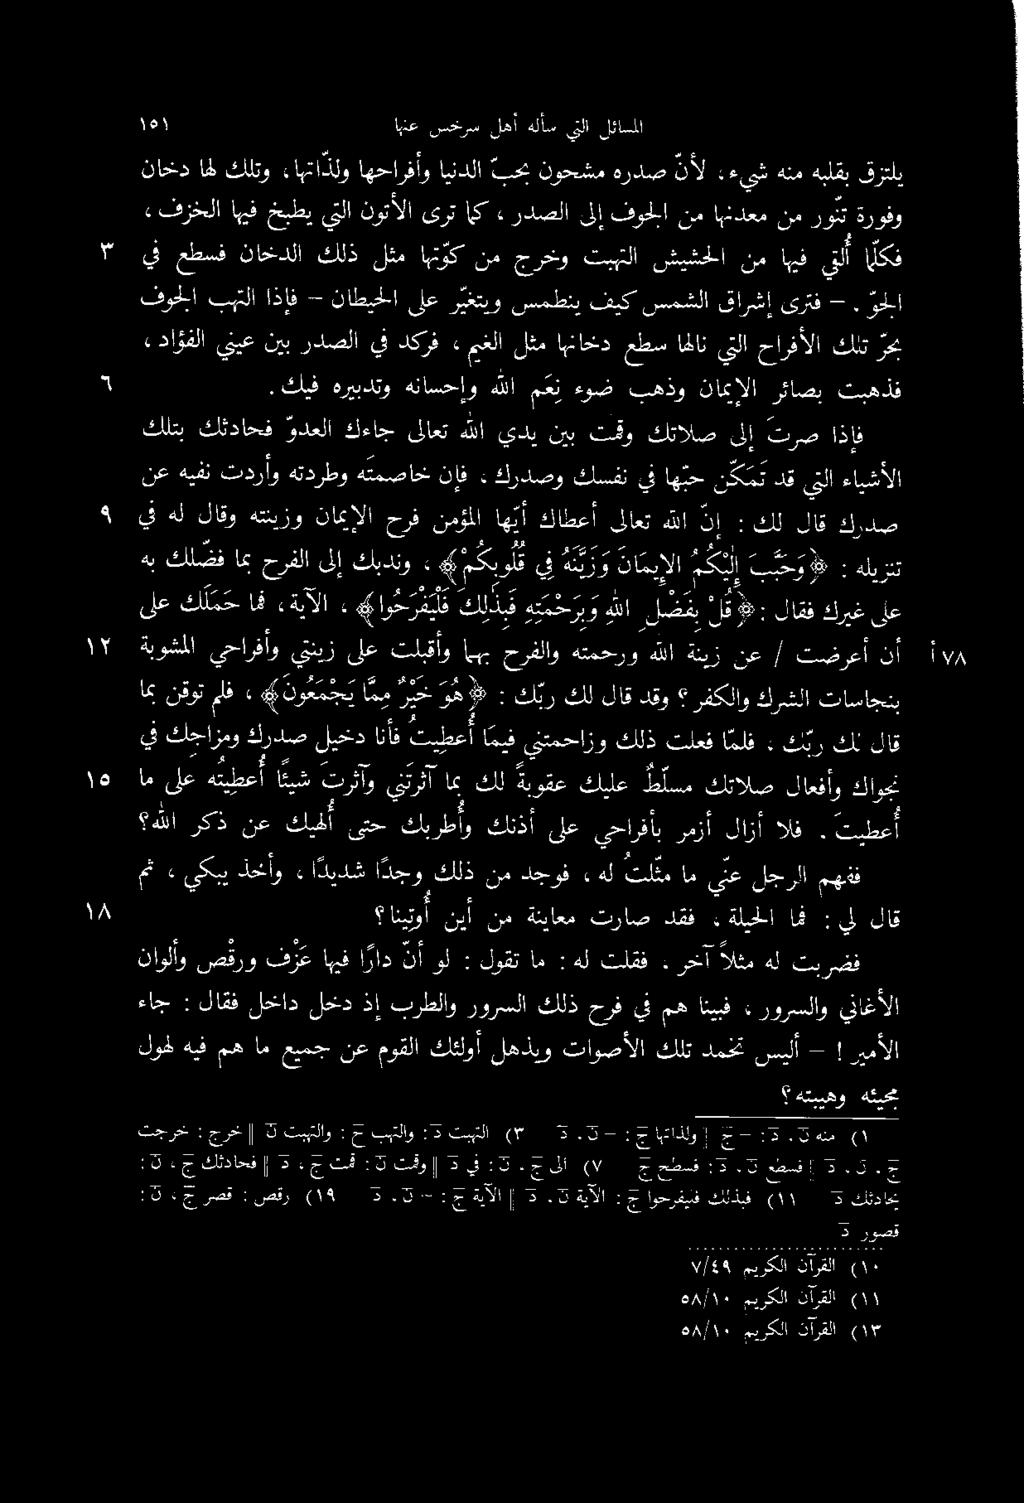 المسائل التي سأله أهل سرخس عنها ١٥١
يلتزق بقلبه منه شيء، لأنّ صدره مشحون بحبّ الدنيا وأفراحها ولذاتها، وتلك لها دخان
وفورة تنّور من معدنها من الجوف إلى الصدر، كما ترى الأتون التي يطبخ فيها الخزف،
فكلّما أُلقي فيها من الحشيش التهبت وخرج من كوّتها مثل ذلك الدخان فسطع في ٣
الجوّ. – فترى إشراق الشمس كيف ينطمس ويتغيّر على الحيطان – فإذا التهب الجوف
بحرّ تلك الأفراح التي نالها سطع دخانها مثل الغيم، فركد في الصدر بين عيني الفؤاد،
فذهبت بصائر الإيمان وذهب ضوء نِعَم الله وإحسانه وتدبيره فيك. ٦
فإذا صرتَ إلى صلاتك وقمت بين يدي الله تعالى جاءك العدوّ فحادثك بتلك
الأشياء التي قد تَمَكّن حبّها في نفسك وصدرك، فإن خاصمتَه وطردته وأردت نفيه عن
صدرك قال لك: إنّ الله تعالى أعطاك أيّها المؤمن فرح الإيمان وزينته وقال له في ٩
تنزيله: ﴿وَحَبَّبَ إِلَيْكُمُ الإيمَانَ وَزَيَّنَهُ فِي قُلُوبِكُمْ﴾، وندبك إلى الفرح بما فضّلك به
على غيرك فقال: ﴿قُلْ بِفَضْلِ اللهِ وَبِرَحْمَتِهِ فَبِذَلِكَ فَلْيَفْرَحُوا﴾، الآية، فما حَمَلَك على
أن أعرضت / عن زينة الله ورحمته والفرح بهما وأقبلت على زينتي وأفراحي المشوبة ١٢ ٧٨أ
بنجاسات الشرك والكفر؟ وقد قال لك ربّك: ﴿هُوَ خَيْرٌ مِمَّا يَجْمَعُونَ﴾، فلم توقن بما
قال لك ربّك، فلمّا فعلت ذلك وزاحمتني فيما أُعطِيتُ فأنا دخيل صدرك ومزاجك في
نجواك وأفعال صلاتك مسلّطٌ عليك عقوبةً لك بما آثرتَني وآثرتَ شيئًا أُعطِيتُه على ما ١٥
أُعطيتَ. فلا أزال أزمر بأفراحي على أذنك وأُطربك حتى أُلهيك عن ذكر الله؟
ففهم الرجل عنّي ما مثّلتُ له، فوجد من ذلك وجدًا شديدًا، وأخذ يبكي، ثم
قال لي: فما الحيلة، فقد صارت معاينة من أين أُوتينا؟ ١٨
فضربت له مثلاً آخر. فقلت له: ما تقول: لو أنّ دارًا فيها عَزْف ورقْص وألوان
الأغاني والسرور، فبينا هم في فرح ذلك السرور والطرب إذ دخل داخل فقال: جاء
الأمير! – أليس تخمد تلك الأصوات ويذهل أولئك القوم عن جميع ما هم فيه لهول
مجيئه وهيبته؟
١) منه ن. د: – ج || ولذاتها ج: – ن. د ٣) التهبت د: والتهب ج: والتهبت ن || خرج: خرجت
ج. ن. د || فسطع ن. د: فسطح ج ٧) الى ج. ن: في د || وقمت ن: قمت ج، د || فحادثك ج، ن:
يحادثك د ١١) فبذلك فليفرحوا ج: الآية ن. د || الآية ج: – ن. د ١٩) رقص: قصر ج، ن:
قصور د
١٠) القرآن الكريم ٧/٤٩
١١) القرآن الكريم ٥٨/١٠
١٣) القرآن الكريم ٥٨/١٠